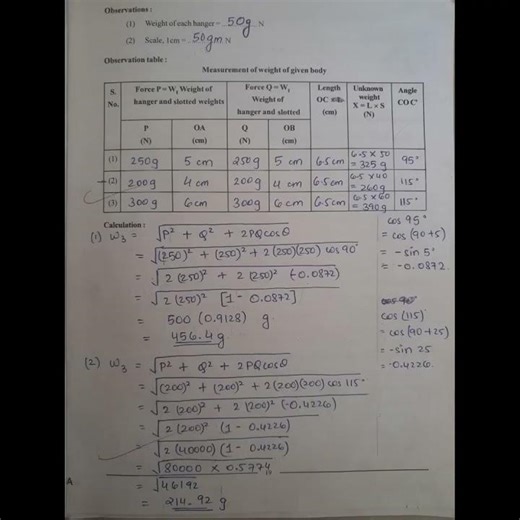 Observations :
(1) Weight of each hanger = 50g N
(2) Scale, 1cm = 50gm N
Observation table :
Measurement of weight of given body
S. No. | Force P = W₁ Weight of hanger and slotted weights | Force Q = W₁ Weight of hanger and slotted | Length OC (cm) | Unknown weight X = L × S (N) | Angle COC'
P (N) | OA (cm) | Q (N) | OB (cm)
(1) 250g | 5 cm | 250g | 5 cm | 6.5cm | 6.5 x 50 = 325 g | 95°
(2) 200g | 4 cm | 200g | 4 cm | 6.5cm | 6.5 x 40 = 260g | 115°
(3) 300g | 6 cm | 300g | 6 cm | 6.5cm | 6.5 x 60 = 390g | 115°
Calculation :
(1) W₃ = √P² + Q² + 2PQcosθ
= √(250)² + (250)² + 2(250)(250) cos 90°
= √2(250)² + 2(250)² (-0.0872)
= √2(250)² [1 - 0.0872]
= 500 (0.9128) g
= 456.4 g
cos 95°
= cos (90+5)
= -sin 5°
= -0.0872
(2) W₃ = √P² + Q² + 2PQcosθ
= √(200)² + (200)² + 2(200)(200) cos 115°
= √2(200)² + 2(200)² (-0.4226)
= √2(200)² (1 - 0.4226)
= √2(40000)(1 - 0.4226)
= √80000 x 0.5774
= √46192
= 214.92 g
cos (115°)
= cos (90+25)
= -sin 25
= -0.4226
A